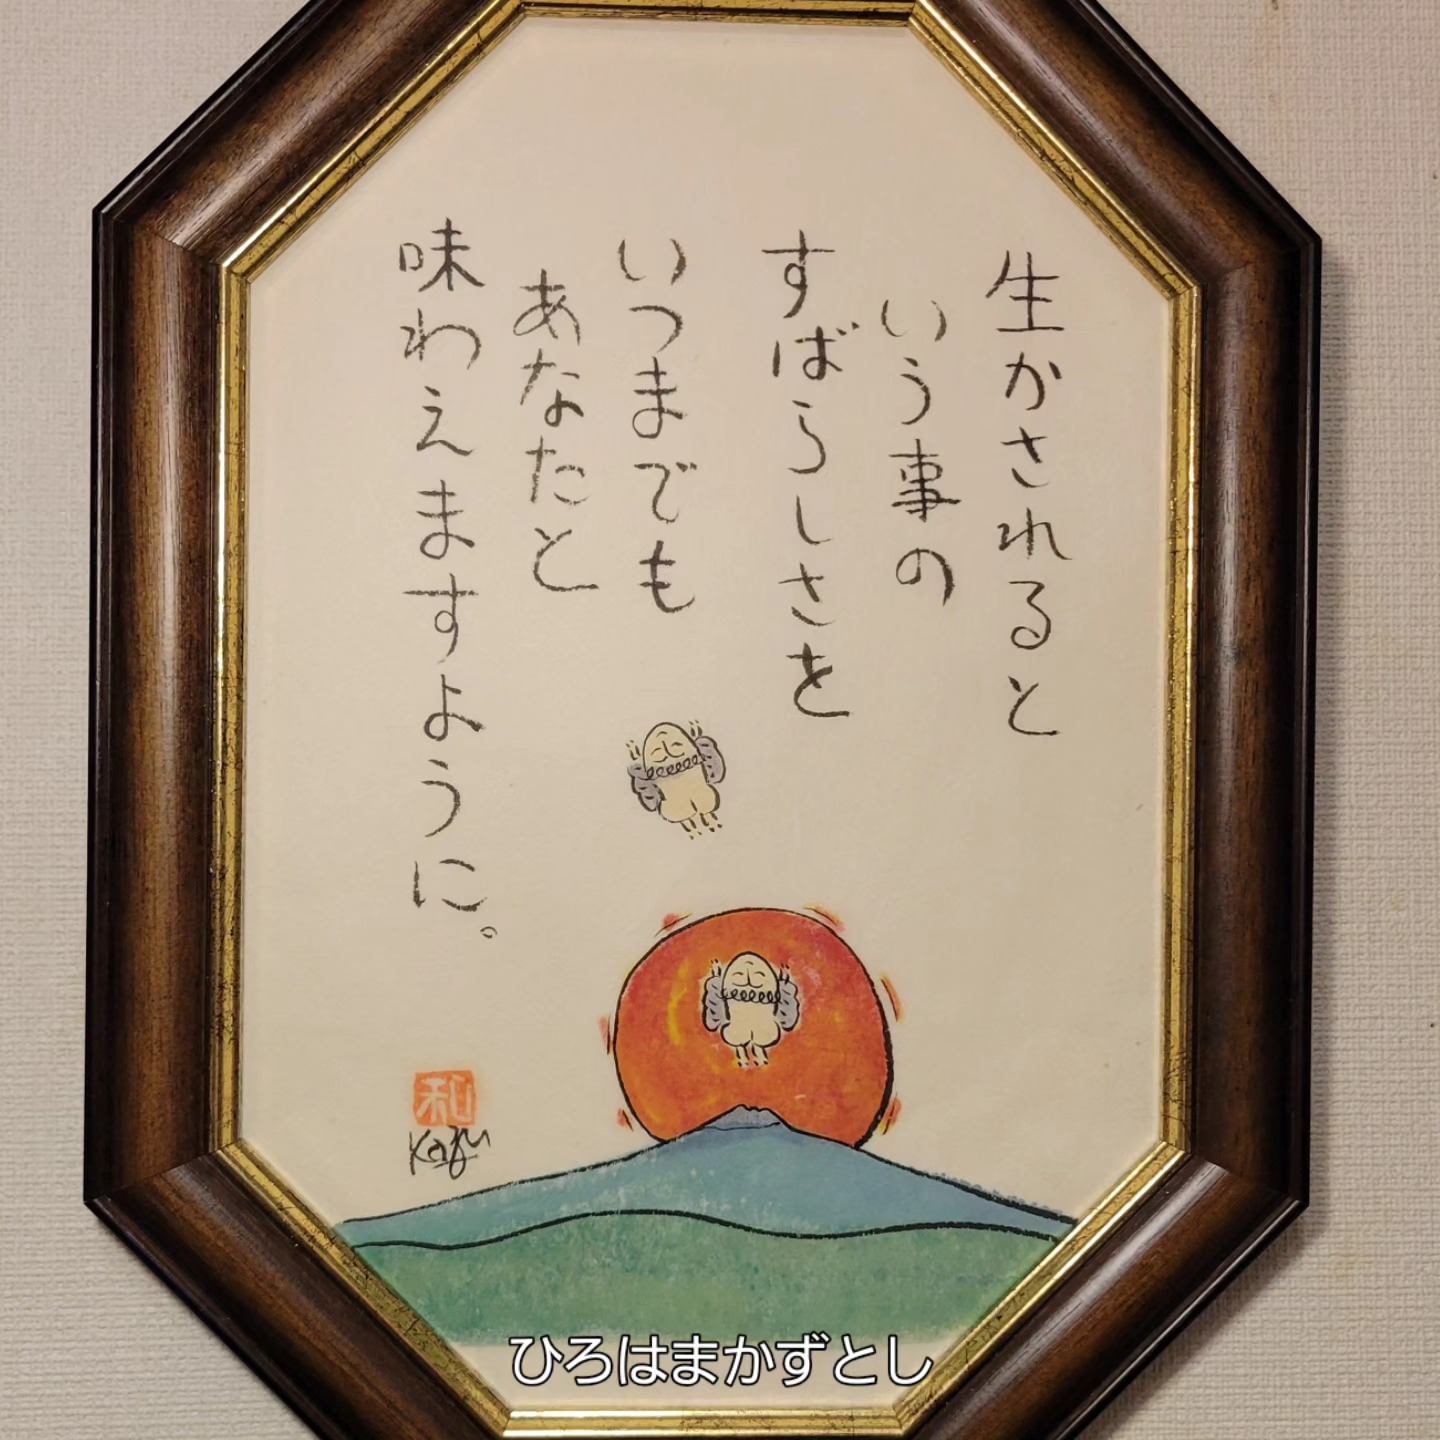 生かされると
いう事の
すばらしさを
いつまでも
あなたと
味わえますように。
和
Kazu
ひろはまかずとし